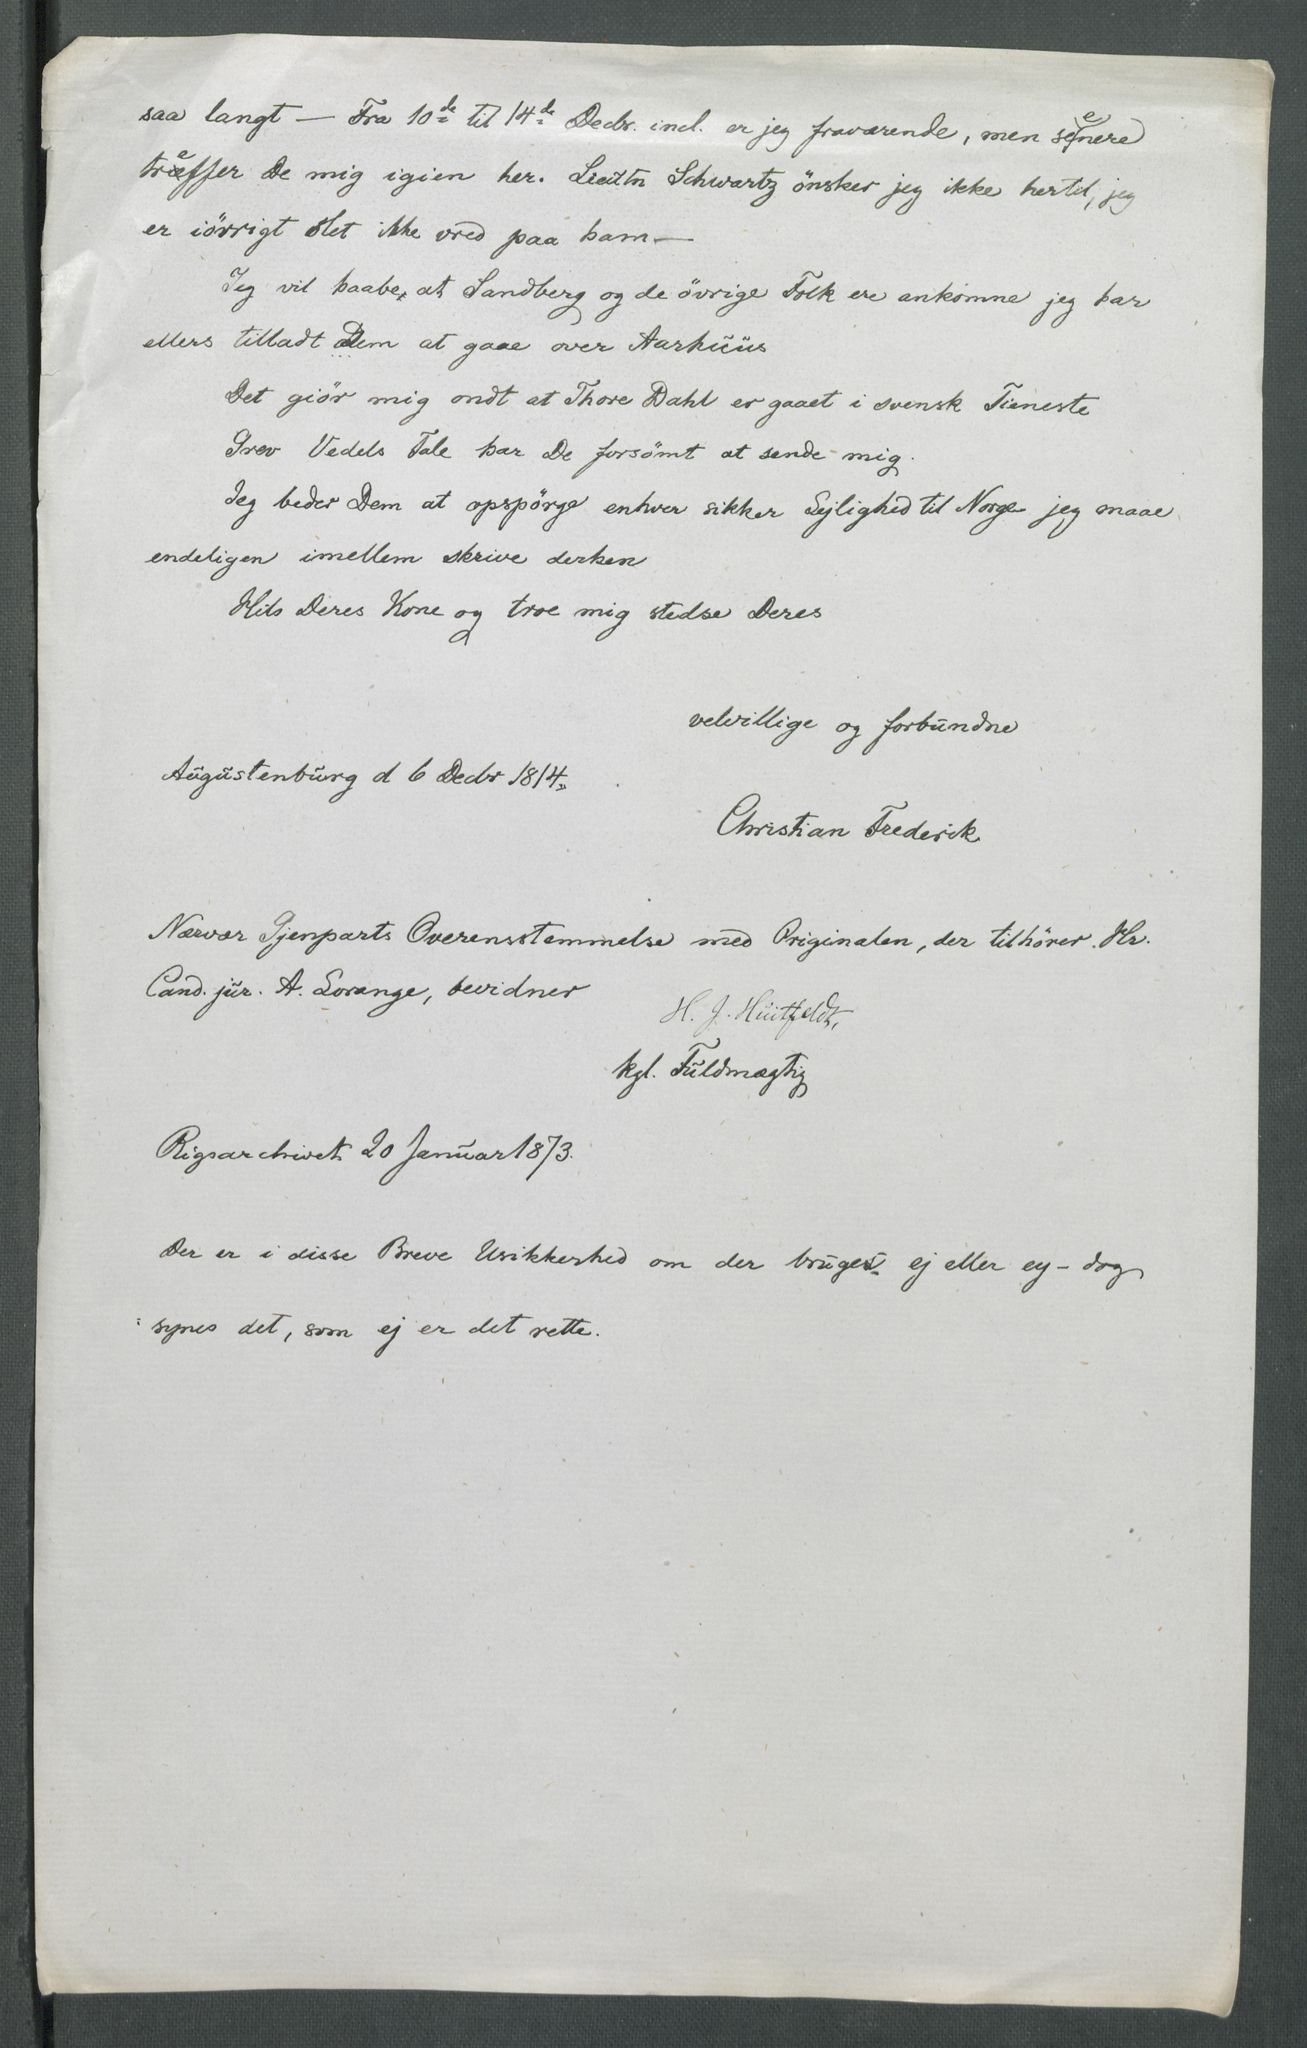 saa langt — Fra 10de til 14de Decbr. incl. er jeg fraværende, men senere
træffer De mig igien her. Lieutn Schwartz önsker jeg ikke hertil, jeg
er iövrigt slet ikke vred paa ham —
Jeg vil haabe, at Sandberg og de övrige Folk ere ankomne jeg har
ellers tilladt Dem at gaae over Aarhuus
Det giör mig ondt at Thore Dahl er gaaet i svensk Tieneste
Grev Vedels Tale har De forsömt at sende mig.
Jeg beder Dem at opspörge enhver sikker Lejlighed til Norge jeg maae
endeligen imellem skrive derhen
Hils Deres Kone og troe mig stedse Deres
velvillige og forbundne
Augustenburg d 6 Decbr 1814.
Christian Frederik
Nærvær Gjenparts Overensstemmelse med Originalen, der tilhörer Hr.
Cand. jur. A. Lorange, bevidner
H. J. Huitfeldt,
kgl. Fuldmægtig
Rigsarchivet 20 Januar 1873.
Der er i disse Breve Usikkerhed om der bruges ej eller ey – dog
synes det, som ej er det rette.